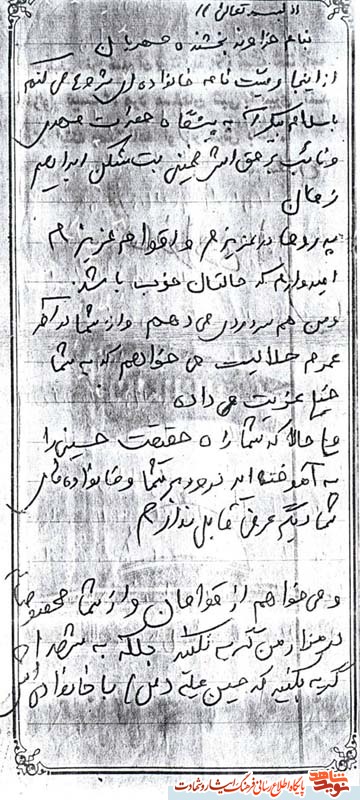 // بسمه تعالی //
بنام خداوند بخشنده مهربان
از اینجا وصیت نامه خانواده‌ای شروع می کنم
با سلام بیکران به پیشگاه حضرت مهدی
و نائب بر حقش خمینی بت شکن ابراهیم
زمان
پدر و مادر عزیزم و اقوام عزیزم
امیدوارم که حالتان خوب باشد
و من هم سر دردی می دهم و از شما مادر که
عمرم حلالیت می خواهم که به شما
خیلی عزیت می داده
حالا که شما راه حقیقت حسینی را
به آموخته اید درود بر شما و خانواده های
شما دیگر عرض قابل ندارم
و می خواهم از خواهران و از شما مخصوصا
در مزار من گریه نکنید بلکه به مشهد
گریه بکنید که حسین علی (ص) با خانواده اش
پایگاه اطلاع رسانی فرهنگ ایثار و شهادت
نوید شاهد